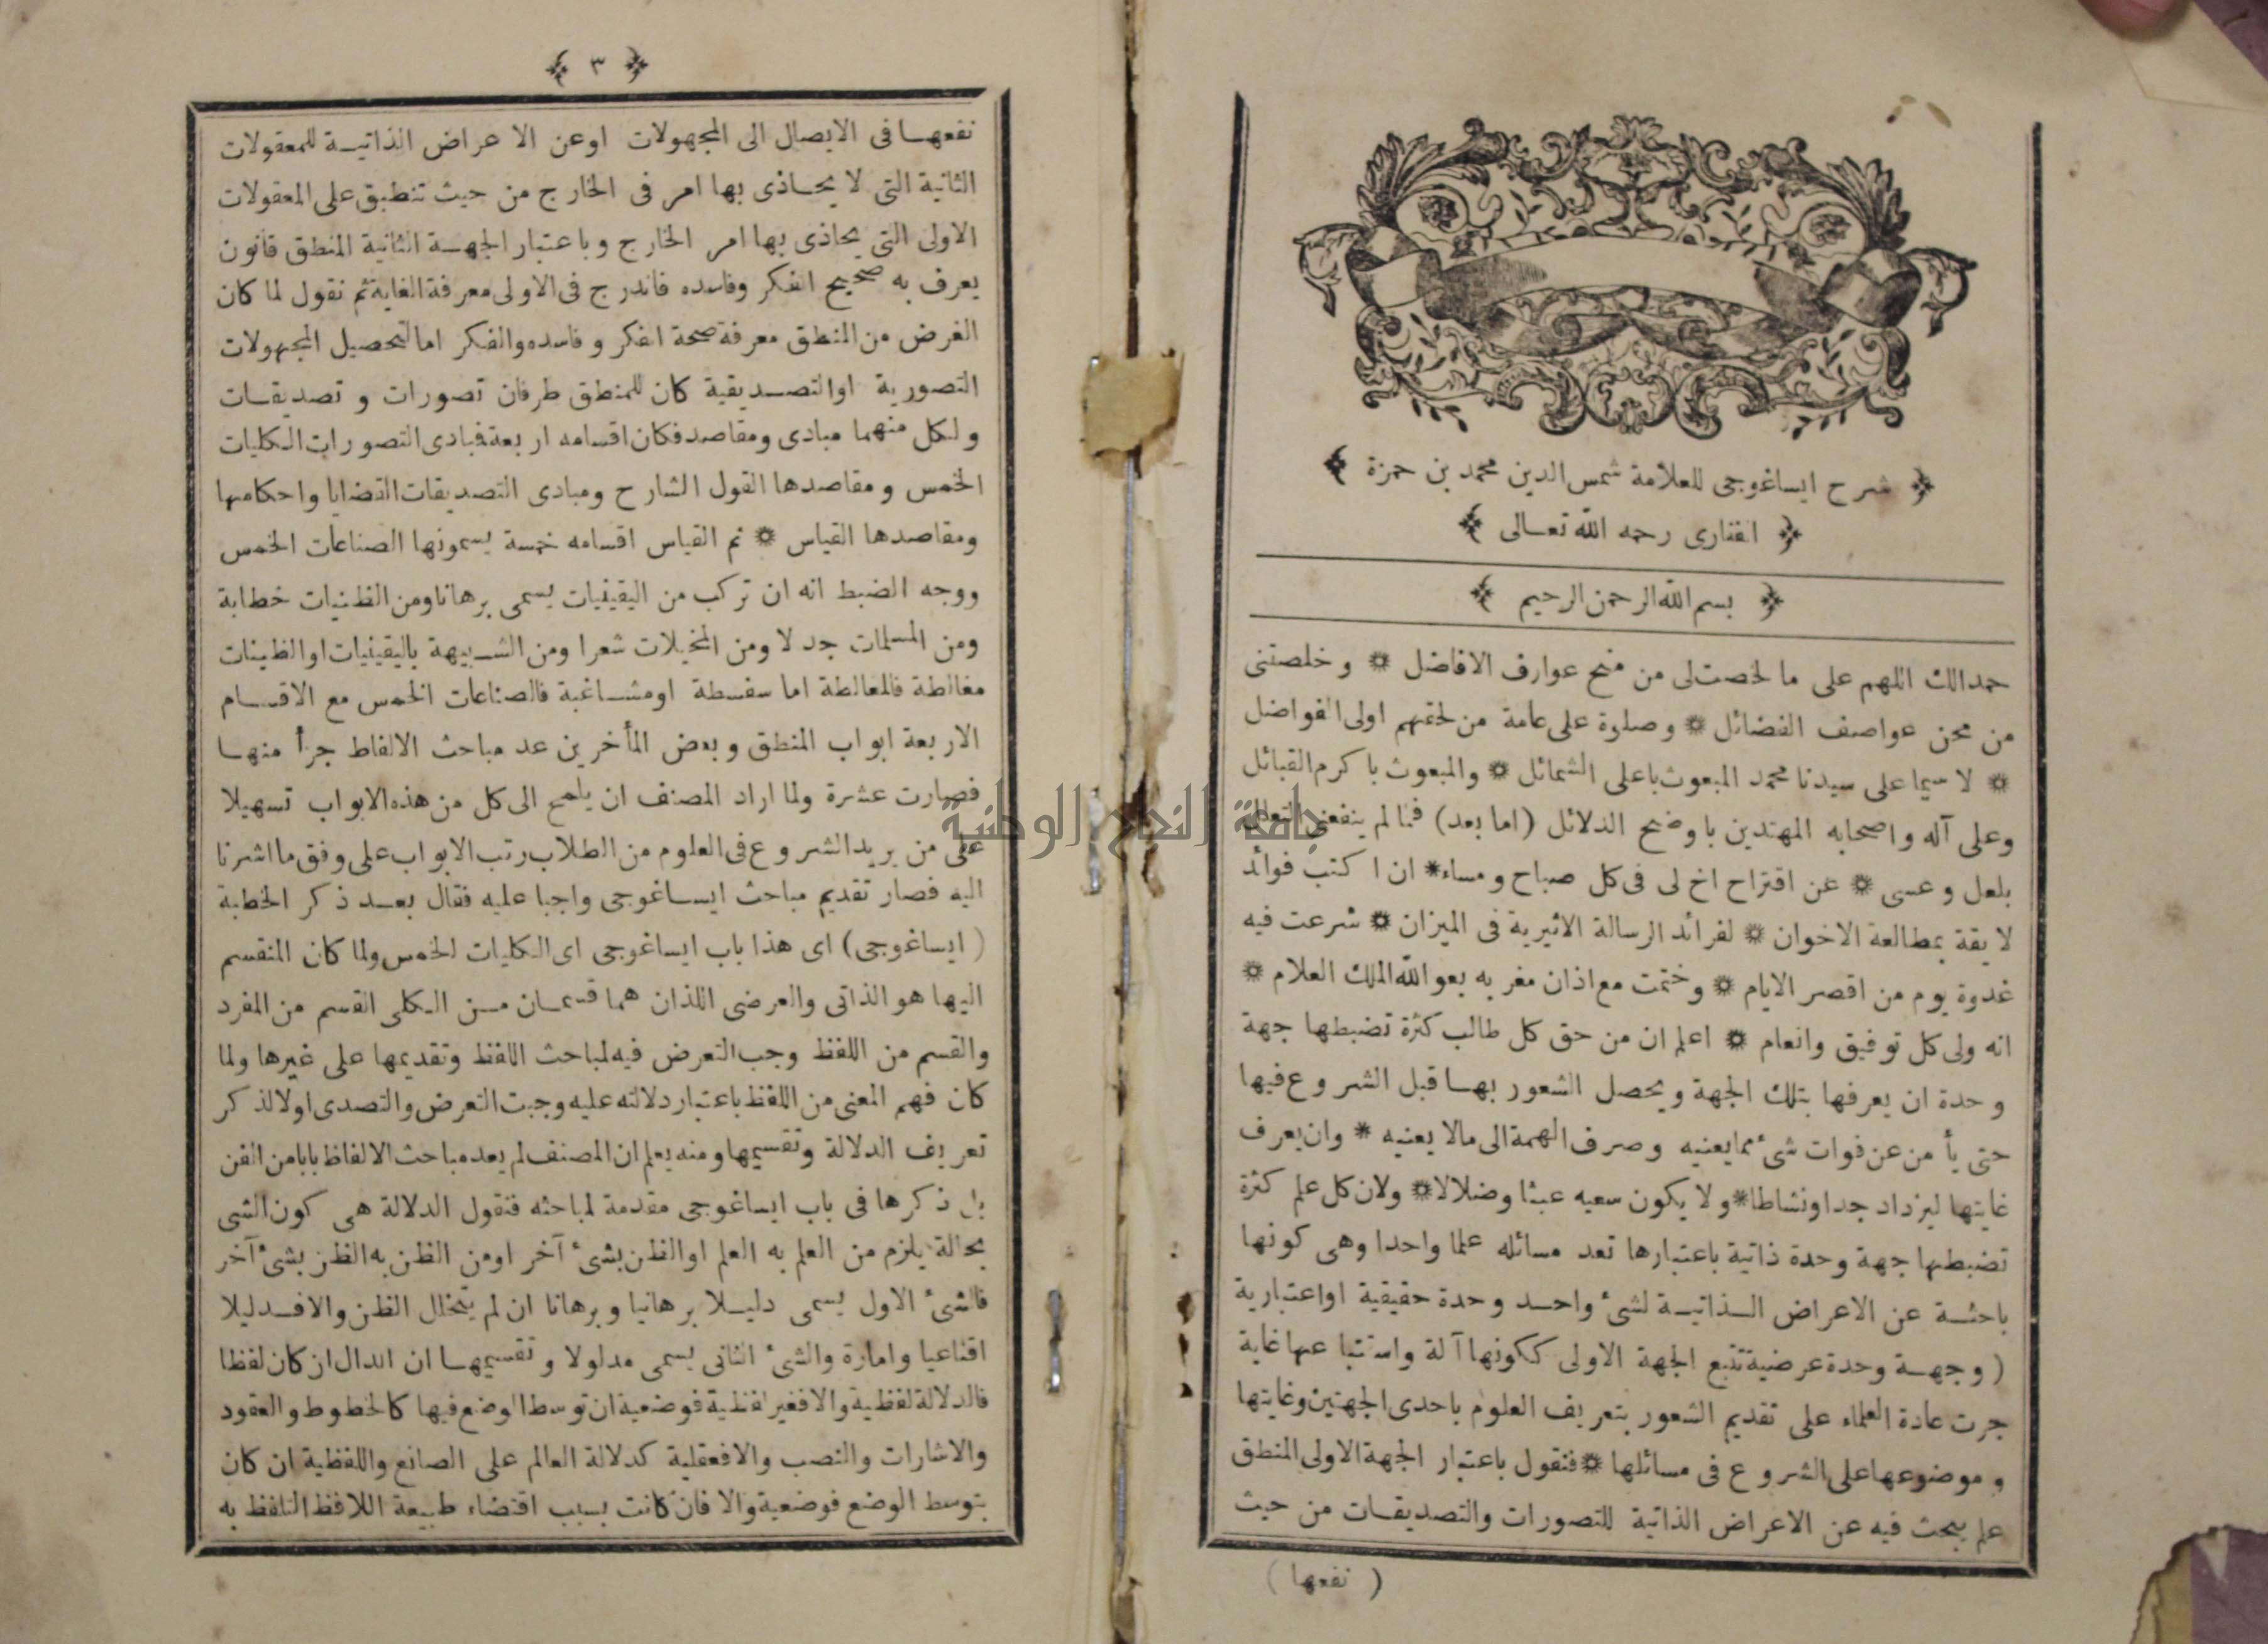 شرح ايساغوجى للعلامة شمس الدين محمد بن حمزة
الفنارى رحمه الله تعالى
بسم الله الرحمن الرحيم
حمدا لك اللهم على ما لخصت لى من منح عوارف الافاضل * وخلصتنى
من محن عواصف الفضائل * وصلوة على عامة من لحقتهم اولى الفواضل
* لا سيما على سيدنا محمد المبعوث باعلى الشمائل * والمبعوث باكرم القبائل
وعلى آله واصحابه المهتدين باوضح الدلائل (اما بعد) فما لم ينفعنى التعلل
بلعل وعسى * عن اقتراح اخ لى فى كل صباح ومساء * ان اكتب فوائد
لايقة بمطالعة الاخوان * لفرائد الرسالة الاثيرية فى الميزان * شرعت فيه
غدوة يوم من اقصر الايام * وختمت مع اذان مغربه بعو الله الملك العلام *
انه ولى كل توفيق وانعام * اعلم ان من حق كل طالب كثرة تضبطها جهة
وحدة ان يعرفها بتلك الجهة ويحصل الشعور بها قبل الشروع فيها
حتى يأمن عن فوات شئ مما يعنيه وصرف الهمة الى مالا يعنيه * وان يعرف
غايتها ليزداد جدا ونشاطا * ولا يكون سعيه عبثا وضلالا * ولان كل علم كثرة
تضبطها جهة وحدة ذاتية باعتبارها تعد مسائله علما واحدا وهى كونها
باحثة عن الاعراض الذاتية لشئ واحد وحدة حقيقية او اعتبارية
( وجهة وحدة عرضية تتبع الجهة الاولى ككونها آلة واستتباعها غاية
جرت عادة العلماء على تقديم الشعور بتعريف العلوم باحدى الجهتين وغايتها
وموضوعها على الشروع فى مسائلها * فنقول باعتبار الجهة الاولى المنطق
علم يبحث فيه عن الاعراض الذاتية للتصورات والتصديقات من حيث
( نفعها )
٣
نفعها فى الايصال الى المجهولات اوعن الاعراض الذاتية للمعقولات
الثانية التى لا يحاذى بها امر فى الخارج من حيث تنطبق على المعقولات
الاولى التى يحاذى بها امر الخارج وباعتبار الجهة الثانية المنطق قانون
يعرف به صحيح الفكر وفاسده فاندرج فى الاولى معرفة الغاية ثم نقول لما كان
الغرض من المنطق معرفة صحة الفكر وفاسده والفكر اما لتحصيل المجهولات
التصورية او التصديقية كان للمنطق طرفان تصورات وتصديقات
ولكل منهما مبادى ومقاصد فكان اقسامه اربعة فبادى التصورات الكليات
الخمس ومقاصدها القول الشارح ومبادى التصديقات القضايا واحكامها
ومقاصدها القياس * ثم القياس اقسامه خمسة يسمونها الصناعات الخمس
ووجه الضبط انه ان تركب من اليقينيات يسمى برهانا ومن الظنيات خطابة
ومن المسلمات جدلا ومن المخيلات شعرا ومن الشبيهة باليقينيات او الظنينات
مغالطة فالمغالطة اما سفسطة او مشاغبة فالصناعات الخمس مع الاقسام
الاربعة ابواب المنطق وبعض المأخرين عد مباحث الالفاط جزأ منها
فصارت عشرة ولما اراد المصنف ان يلمح الى كل من هذه الابواب تسهيلا
على من يريد الشروع فى العلوم من الطلاب رتب الابواب على وفق ما اشرنا
اليه فصار تقديم مباحث ايساغوجى واجبا عليه فقال بعد ذكر الخطبة
( ايساغوجى) اى هذا باب ايساغوجى اى الكليات الخمس ولما كان المنقسم
اليها هو الذاتى والعرضى اللذان هما قسمان من الكلى القسم من المفرد
والقسم من اللفظ وجب التعرض فيه لمباحث اللفظ وتقديمها على غيرها ولما
كان فهم المعنى من اللفظ باعتبار دلالته عليه وجبت التعرض والتصدى اولا لذكر
تعريف الدلالة وتقسيمها ومنه يعلم ان المصنف لم يعد مباحث الالفاظ بابا من الفن
بل ذكرها فى باب ايساغوجى مقدمة لمباحثه فنقول الدلالة هى كون الشى
بحالة يلزم من العلم به العلم او الظن بشئ آخر او من الظن به الظن بشئ آخر
فالشئ الاول يسمى دليلا برهانيا وبرهانا ان لم يتخلل الظن والا فدليلا
اقناعيا وامارة والشئ الثانى يسمى مدلولا وتقسيمها ان الدال ان كان لفظا
فالدلالة لفظية والا فغير لفظية فوضعية ان توسط الوضع فيها كالخطوط والعقود
والاشارات والنصب والا فعقلية كدلالة العالم على الصانع واللفظية ان كان
بتوسط الوضع فوضعية والا فان كانت بسبب اقتضاء طبيعة اللافظ التلفظ به
جامعة النجاح الوطنية